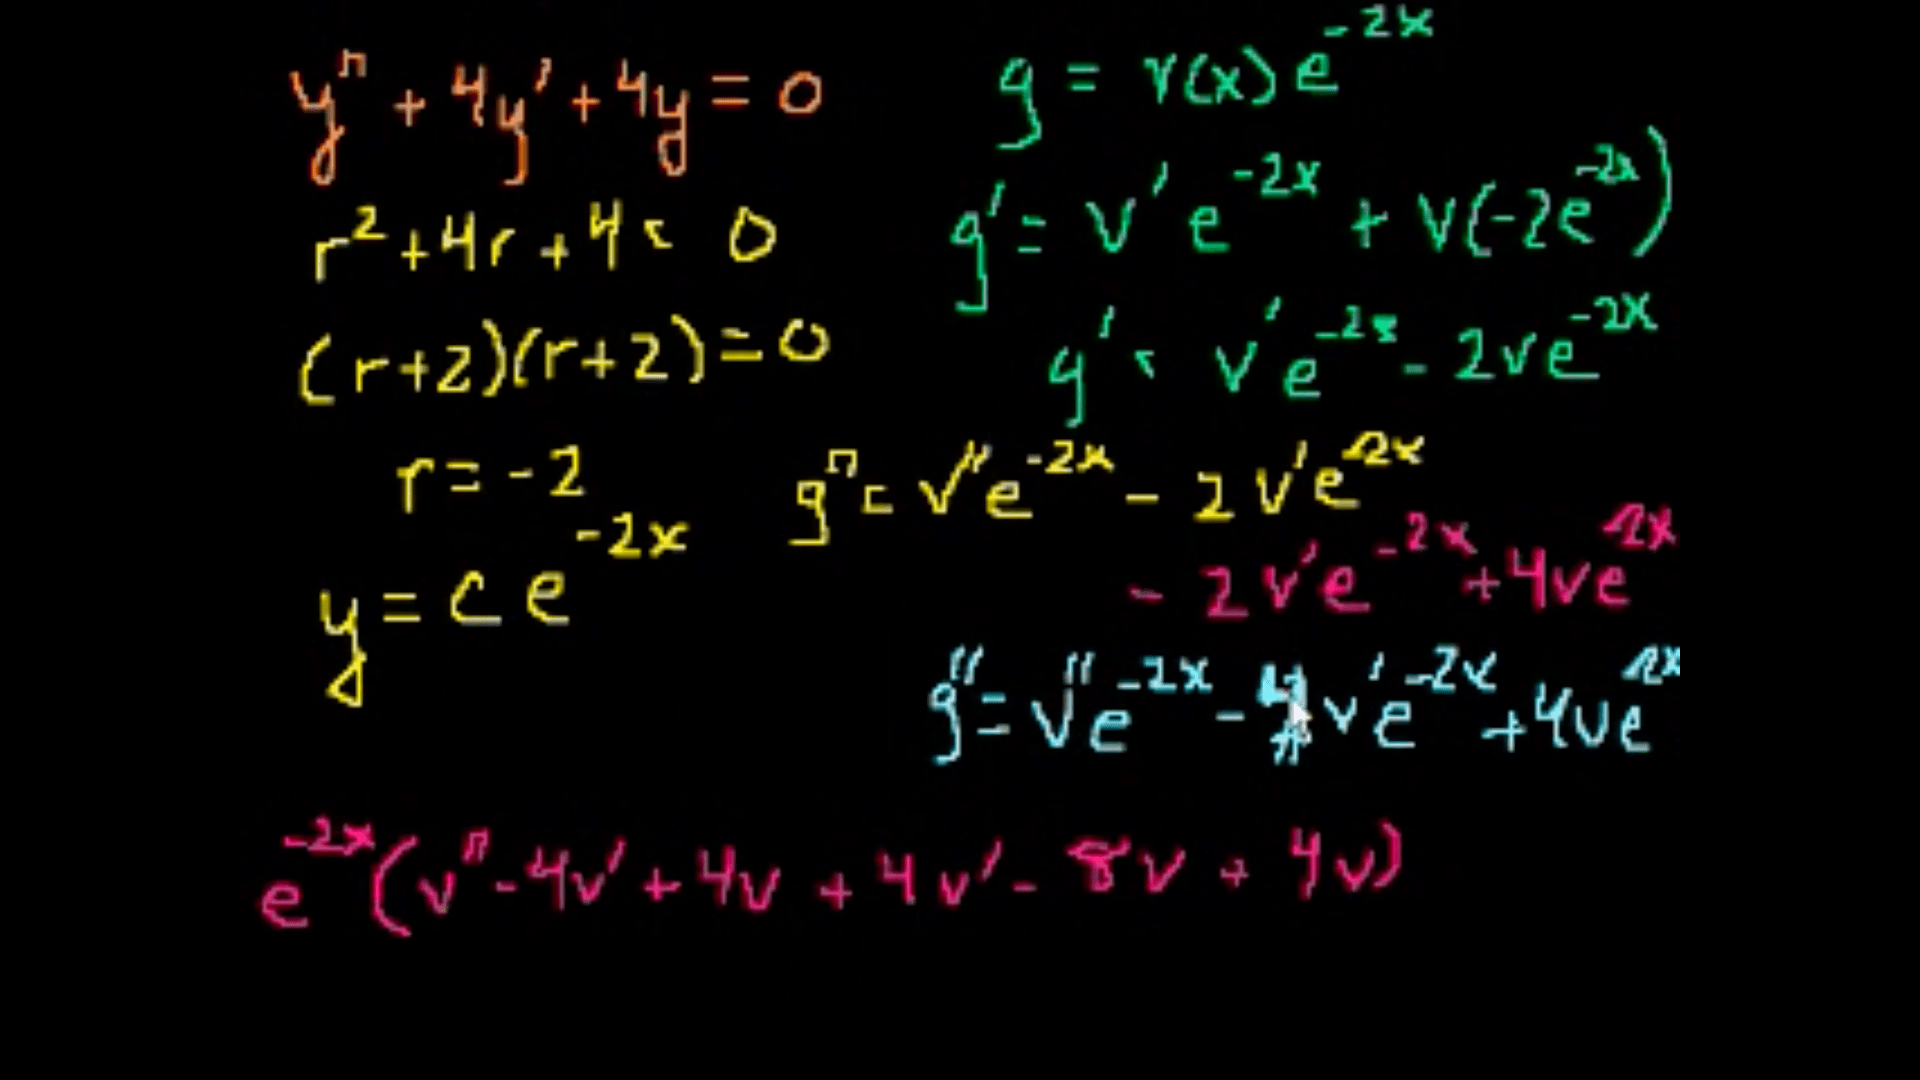 y'' + 4y' + 4y = 0
r² + 4r + 4 = 0
(r+2)(r+2) = 0
r = -2
y = c e^{-2x}
g = v(x) e^{-2x}
g' = v' e^{-2x} + v(-2e^{-2x})
g' = v' e^{-2x} - 2ve^{-2x}
g'' = v'' e^{-2x} - 2v' e^{-2x}
- 2v' e^{-2x} + 4ve^{-2x}
g'' = v'' e^{-2x} - 4v' e^{-2x} + 4ve^{-2x}
e^{-2x}(v'' - 4v' + 4v + 4v' - 8v + 4v)